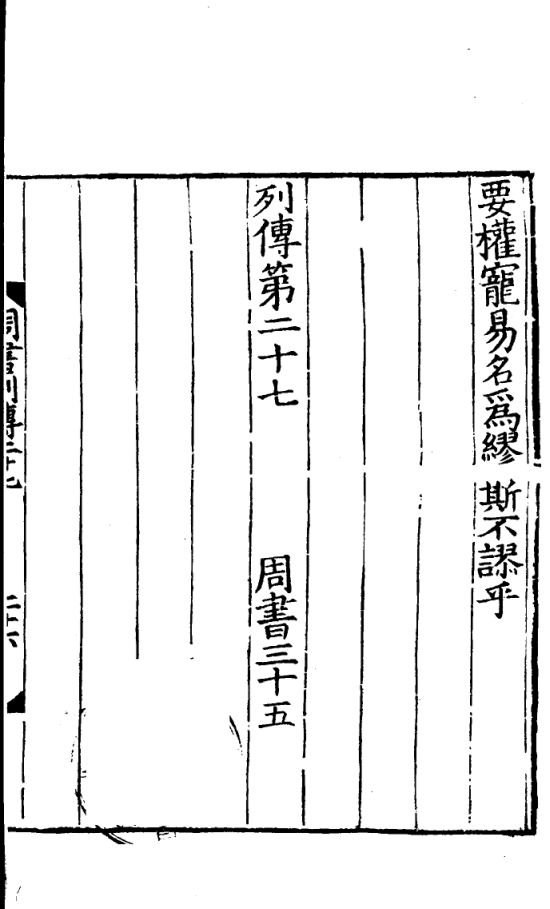 要權寵易名爲繆斯不謬乎
列傳第二十七 周書三十五
周書列傳二十七 二十六